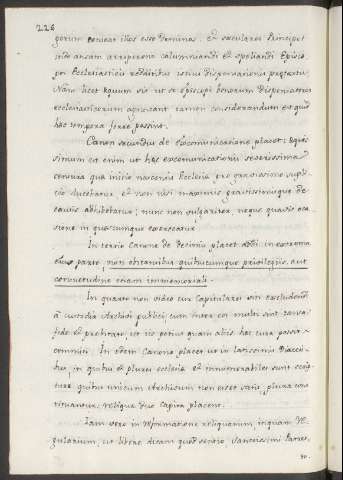 226
gorum deviat illos esse Dominos, et sæculares Principes
inde ansam arriperent calumniandi et spoliandi Episco
pos Ecclesiasticis redditibus istius dispensationis prætextu.
Nam licet æquum sit ut Episcopi bonorum dispensatores
ecclesiasticorum agnoscant tamen considerandum est quid
hæc tempora ferre possint.
Canon secundus de excommunicatione placet: Æquis
simum est enim ut hæc excommunicationis severissima
censura quæ initio nascentis Ecclesiæ pro gravissimo suppli
cio ducebatur et non nisi maximis gravissimisque de
causis adhibebatur; nunc non vulgariter neque quavis oca
sione in quoscumque exerceatur.
In tertio Canone de decimis placet addi in extrema
eius parte, non obstantibus quibuscumque privilegiis, aut
consuetudine etiam immemoriali.
In quarto non video cur Capitulares viri excludendi
à custodia Archivi publici, cum inter eos multi sint tantæ
fide et præstantiæ ut vix potius quam aliis hæc cura possit
committi. In eodem Canone placet ut in latissimis Diœce
sibus, in quibus et plures ecclesiæ et innumerabiles sunt scrip
turæ quibus unicum Archivum non esset satis, plura cons
tituantur. reliqua duo Capita placent.
Iam vero in reformatione reliquarum, inquam Re
gularium, ut liberè dicam quod sentio, Sanctissimi Patres,